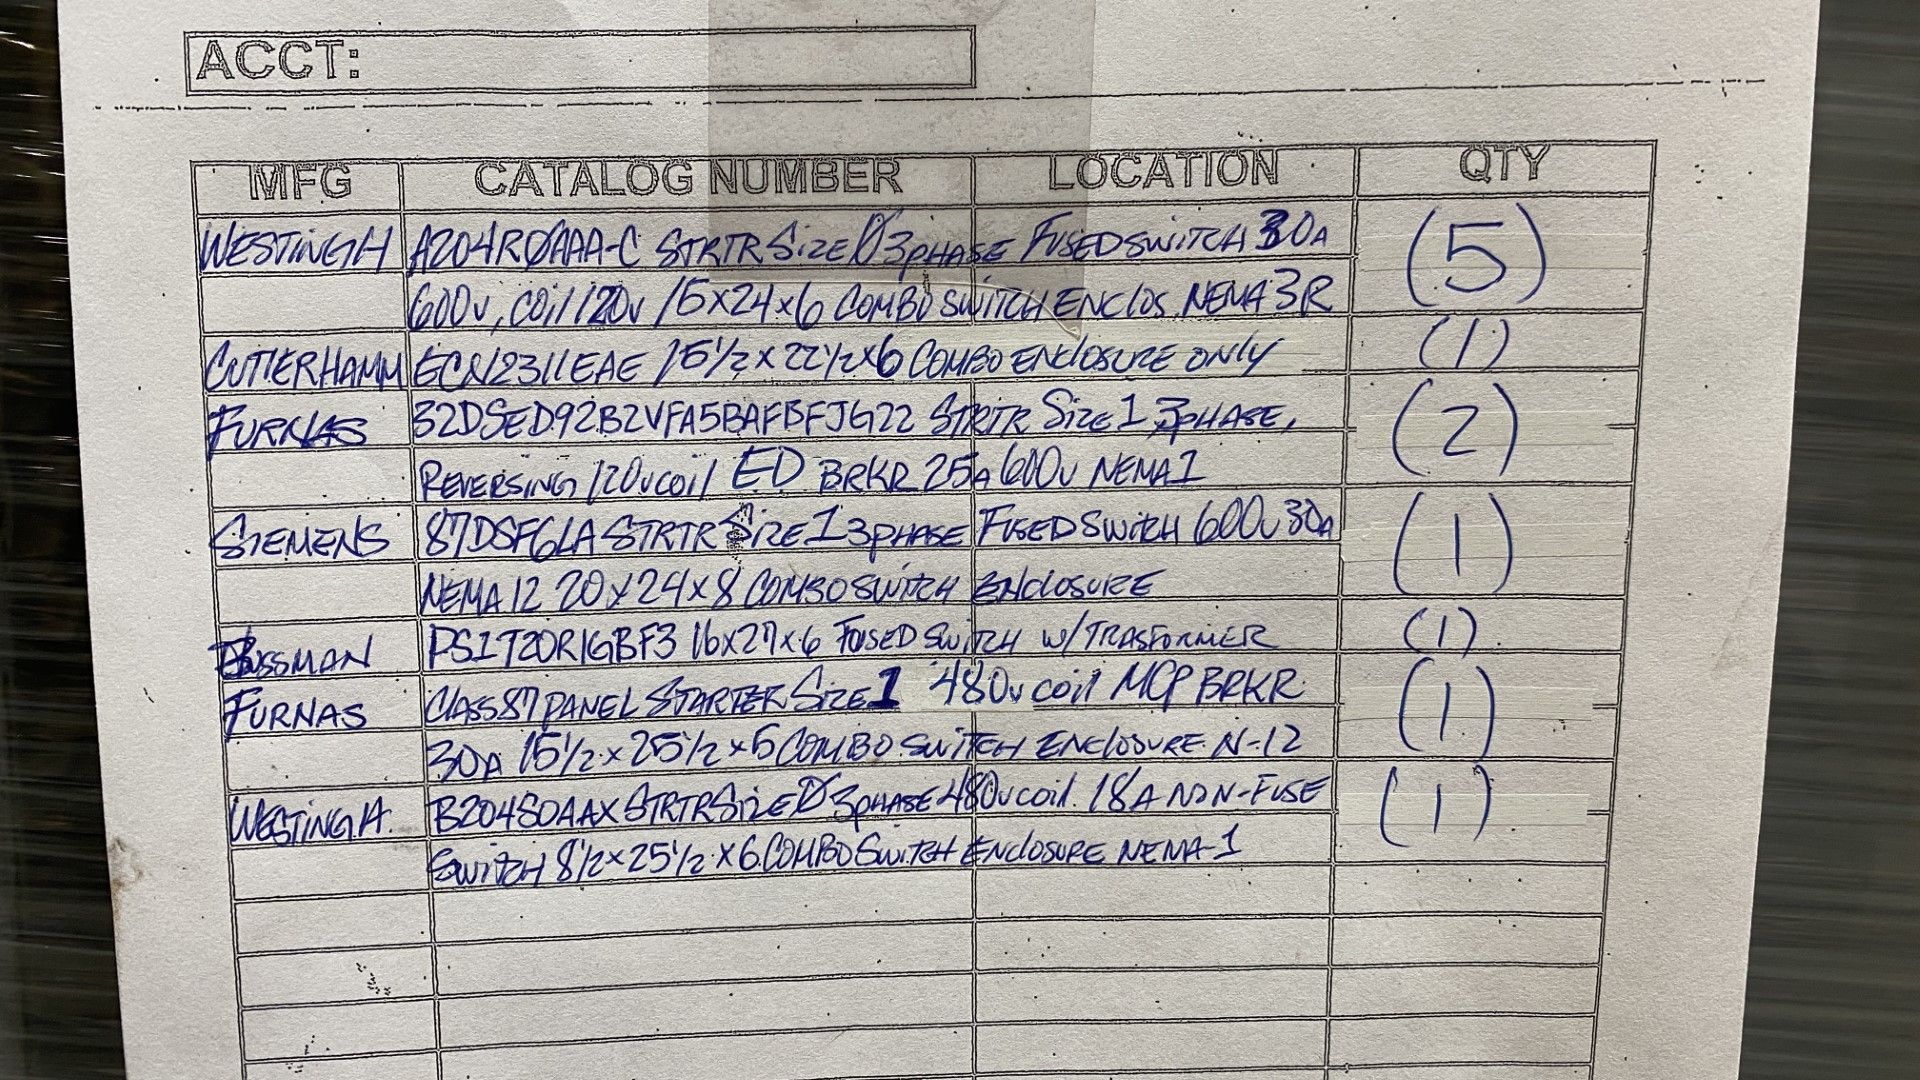 ACCT:
MFG CATALOG NUMBER LOCATION QTY
WESTINGH A204RØAAA-C STRTR SIZE Ø 3PHASE FUSED SWITCH 30A (5)
600V, COIL 120V 15X24X6 COMBO SWITCH ENCLOS. NEMA 3R
CUTLERHAMM ECN2311EAE 15 1/2 X 22 1/2 X6 COMBO ENCLOSURE ONLY (1)
FURNAS 32DSED92B2VFA5BAFBFJG22 STRTR SIZE 1 3PHASE, (2)
REVERSING 120V COIL ED BRKR 25A 600V NEMA1
SIEMENS 87DSF6LA STRTR SIZE 1 3PHASE FUSED SWITCH 600V 30A (1)
NEMA 12 20X24X8 COMBO SWITCH ENCLOSURE
BUSSMAN PS1T20R1GBF3 16X27X6 FUSED SWITCH W/TRASFORMER (1)
FURNAS CLASS 87 PANEL STARTER SIZE 1 480V COIL MCP BRKR (1)
30A 15 1/2 X 25 1/2 X 5 COMBO SWITCH ENCLOSURE N-12
WESTINGH. B204S0AAX STRTR SIZE Ø 3PHASE 480V COIL 18A NON-FUSE (1)
SWITCH 8 1/2 X 25 1/2 X 6 COMBO SWITCH ENCLOSURE NEMA-1